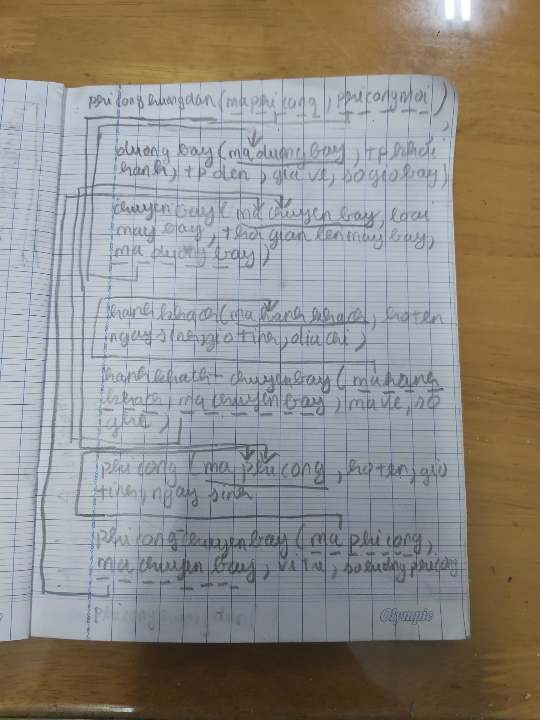 phi cong huong dan (ma phi cong, phi cong moi)
duong bay (ma duong bay, tp khoi
hanh, tp den, gia ve, so gio bay)
chuyen bay (ma chuyen bay, loai
may bay, thoi gian len may bay,
ma duong bay)
hanh khach (ma hanh khach, ho ten
ngay sinh, gioi tinh, dia chi)
hanh khach - chuyen bay (ma hanh
khach, ma chuyen bay, ma ve, so
ghe)
phi cong (ma phi cong, ho ten, gioi
tinh, ngay sinh
phi cong - chuyen bay (ma phi cong,
ma chuyen bay, vi tri, so luong phi cong
Olympic